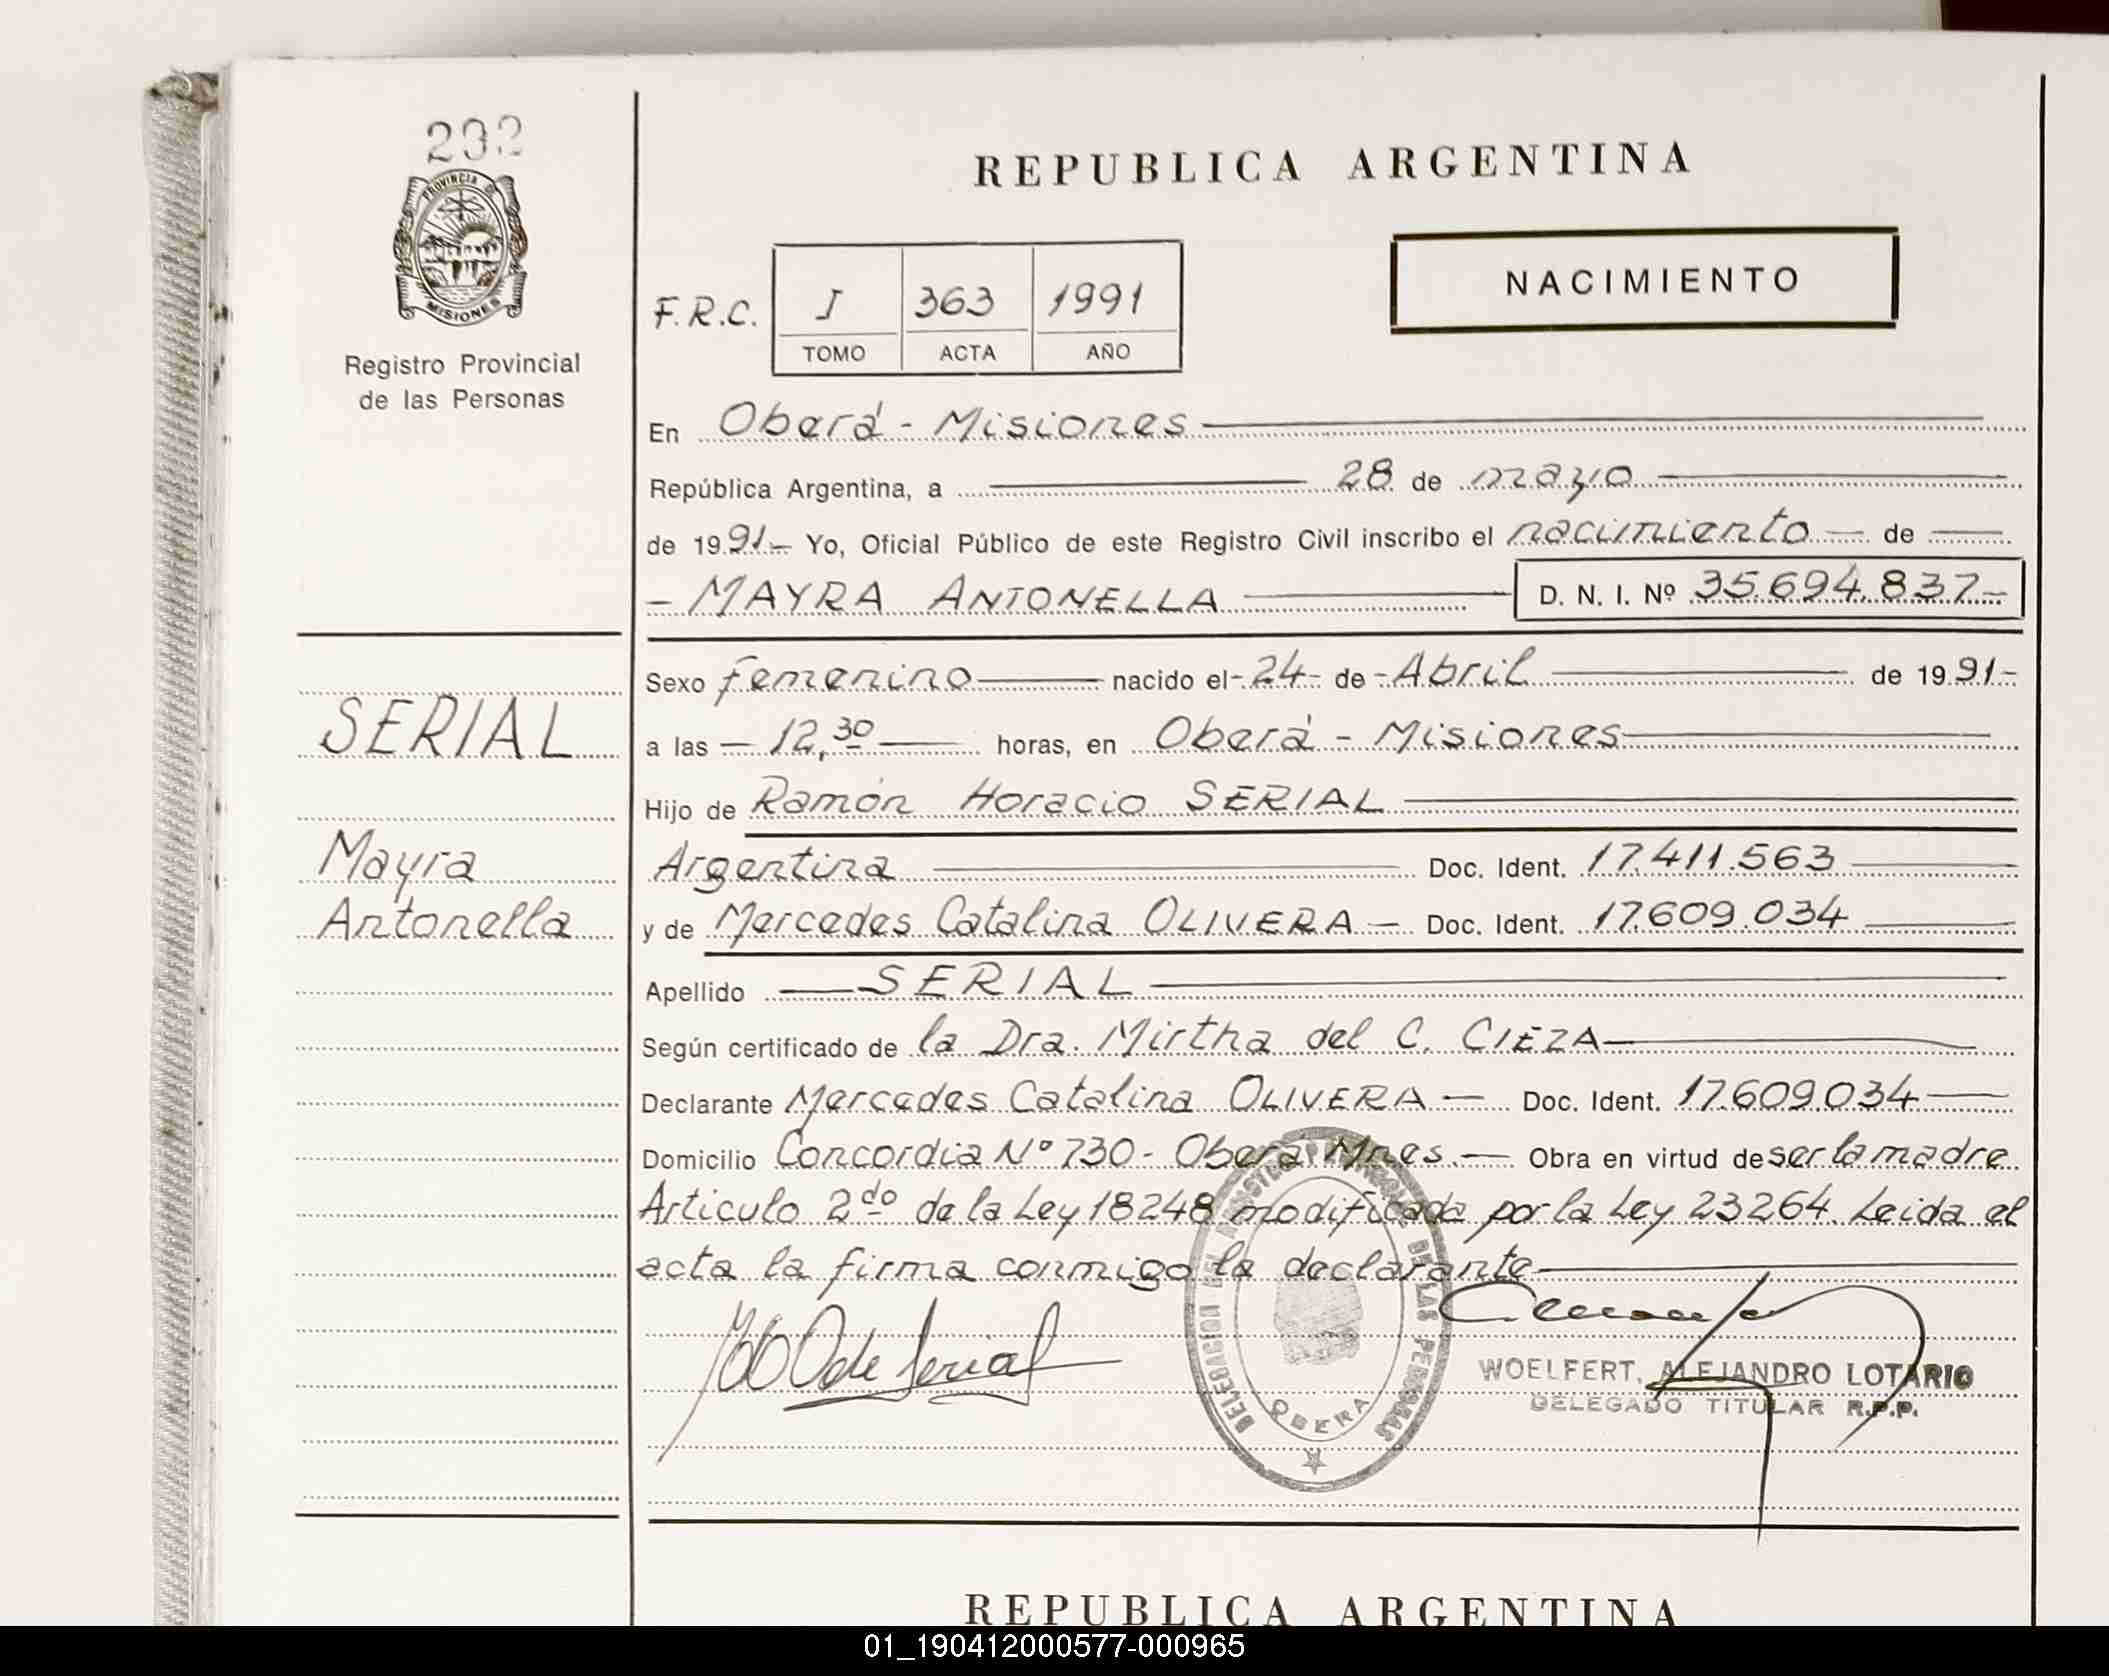 292
PROVINCIA DE
MISIONES
Registro Provincial
de las Personas
SERIAL
Mayra
Antonella
REPUBLICA ARGENTINA
NACIMIENTO
F.R.C. I 363 1991
TOMO ACTA AÑO
En Oberá - Misiones
República Argentina, a 28 de mayo
de 1991.- Yo, Oficial Público de este Registro Civil inscribo el nacimiento - de
- MAYRA ANTONELLA D. N. I. Nº 35.694.837-
Sexo Femenino nacido el - 24 - de - Abril de 1991-
a las - 12,30 horas, en Oberá - Misiones
Hijo de Ramón Horacio SERIAL
Argentina Doc. Ident. 17.411.563
y de Mercedes Catalina OLIVERA - Doc. Ident. 17.609.034
Apellido SERIAL
Según certificado de la Dra. Mirtha del C. CIEZA
Declarante Mercedes Catalina OLIVERA - Doc. Ident. 17.609.034
Domicilio Concordia Nº 730 - Oberá Mnes. - Obra en virtud de ser la madre
Articulo 2do de la Ley 18248 modificada por la Ley 23264. Leida el
acta la firma conmigo la declarante
de Serial
DELEGACION DEL REGISTRO PROVINCIAL DE LAS PERSONAS
OBERA
WOELFERT, ALEJANDRO LOTARIO
DELEGADO TITULAR R.P.P.
REPUBLICA ARGENTINA
01_190412000577-000965